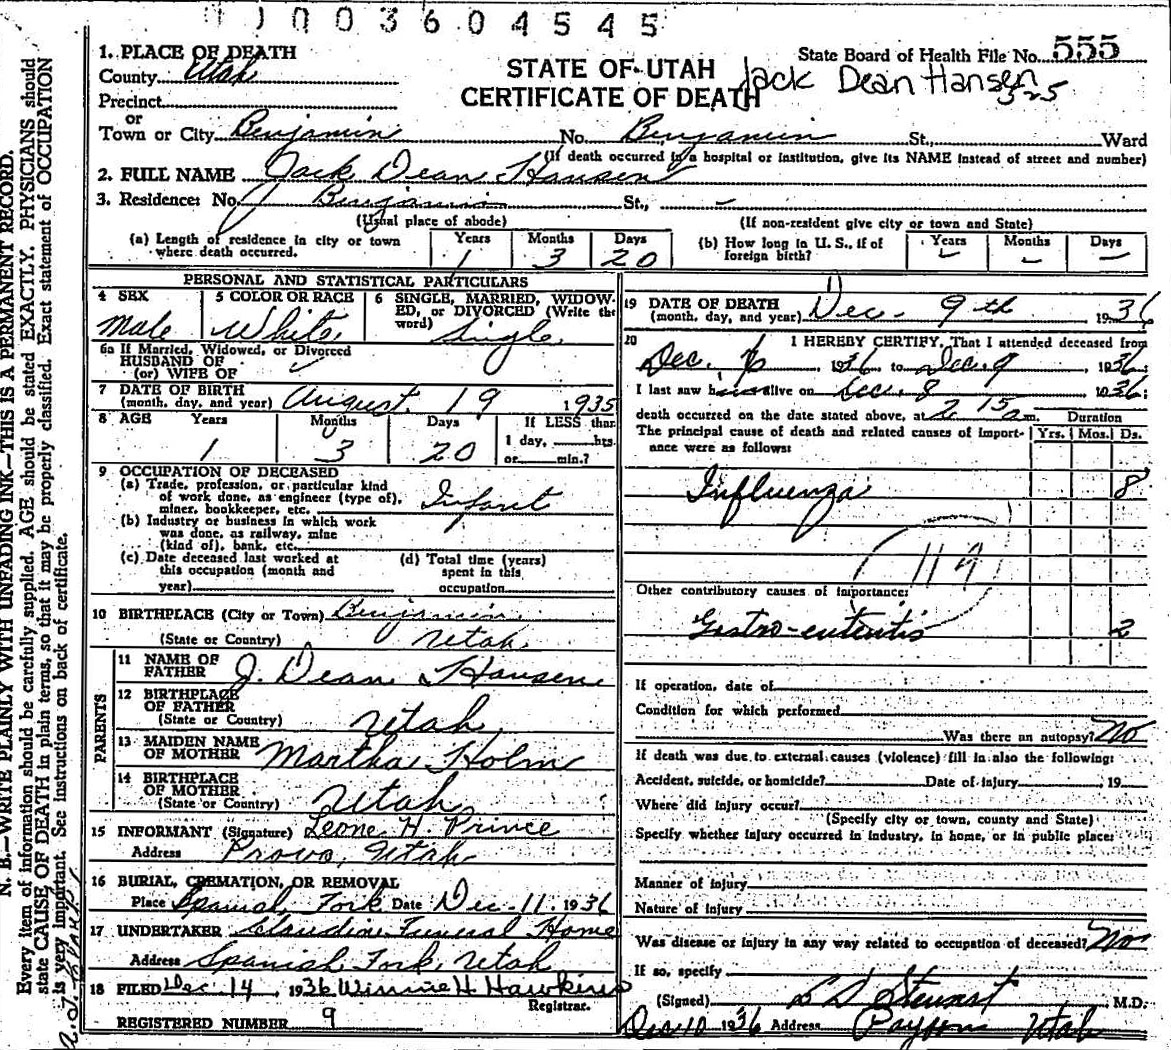 11003604545
State Board of Health File No. 555
1. PLACE OF DEATH
County Utah
STATE OF UTAH
Jack Dean Hansen
325
Precinct
CERTIFICATE OF DEATH
or
Town or City Benjamin No. Benjamin St., Ward
(If death occurred in a hospital or institution, give its NAME instead of street and number)
2. FULL NAME Jack Dean Hansen
3. Residence: No. Benjamin St., –
(Usual place of abode) (If non-resident give city or town and State)
(a) Length of residence in city or town where death occurred. Years 1 Months 3 Days 20
(b) How long in U. S., if of foreign birth? Years – Months – Days –
PERSONAL AND STATISTICAL PARTICULARS
4 SEX Male
5 COLOR OR RACE White
6 SINGLE, MARRIED, WIDOWED, or DIVORCED (Write the word) Single
6a If Married, Widowed, or Divorced
HUSBAND OF
(or) WIFE OF
7 DATE OF BIRTH
(month, day, and year) August 19 1935
8 AGE Years 1 Months 3 Days 20 If LESS than 1 day, hrs. or min.?
9 OCCUPATION OF DECEASED
(a) Trade, profession, or particular kind of work done, as engineer (type of), miner, bookkeeper, etc. Infant
(b) Industry or business in which work was done, as railway, mine (kind of), bank, etc.
(c) Date deceased last worked at this occupation (month and year)
(d) Total time (years) spent in this occupation
10 BIRTHPLACE (City or Town) Benjamin
(State or Country) Utah
PARENTS
11 NAME OF FATHER J. Dean Hansen
12 BIRTHPLACE OF FATHER
(State or Country) Utah
13 MAIDEN NAME OF MOTHER Martha Holm
14 BIRTHPLACE OF MOTHER
(State or Country) Utah
15 INFORMANT (Signature) Leone H. Prince
Address Provo, Utah
16 BURIAL, CREMATION, OR REMOVAL
Place Spanish Fork Date Dec. 11. 1936
17 UNDERTAKER Claudin Funeral Home
Address Spanish Fork, Utah
18 FILED Dec 14, 1936 Winnie H. Hawkins
Registrar.
REGISTERED NUMBER 9
19 DATE OF DEATH
(month, day, and year) Dec. 9th 1936
20 I HEREBY CERTIFY, That I attended deceased from
Dec. 6 1936 to Dec. 9, 1936.
I last saw him alive on Dec. 8 1936;
death occurred on the date stated above, at 2 15 a m. Duration
The principal cause of death and related causes of importance were as follows: Yrs. Mos. Ds.
Influenza 8
119
Other contributory causes of importance:
Gastro-enteritis 2
If operation, date of
Condition for which performed
Was there an autopsy? No
If death was due to external causes (violence) fill in also the following:
Accident, suicide, or homicide? Date of injury , 19
Where did injury occur?
(Specify city or town, county and State)
Specify whether injury occurred in industry, in home, or in public place:
Manner of injury
Nature of injury
Was disease or injury in any way related to occupation of deceased? No
If so, specify
(Signed) L D Stewart M.D.
Dec 10 1936 Address Payson Utah
N. B.—WRITE PLAINLY WITH UNFADING INK—THIS IS A PERMANENT RECORD.
Every item of information should be carefully supplied. AGE should be stated EXACTLY. PHYSICIANS should
state CAUSE OF DEATH in plain terms, so that it may be properly classified. Exact statement of OCCUPATION
is very important. See instructions on back of certificate.